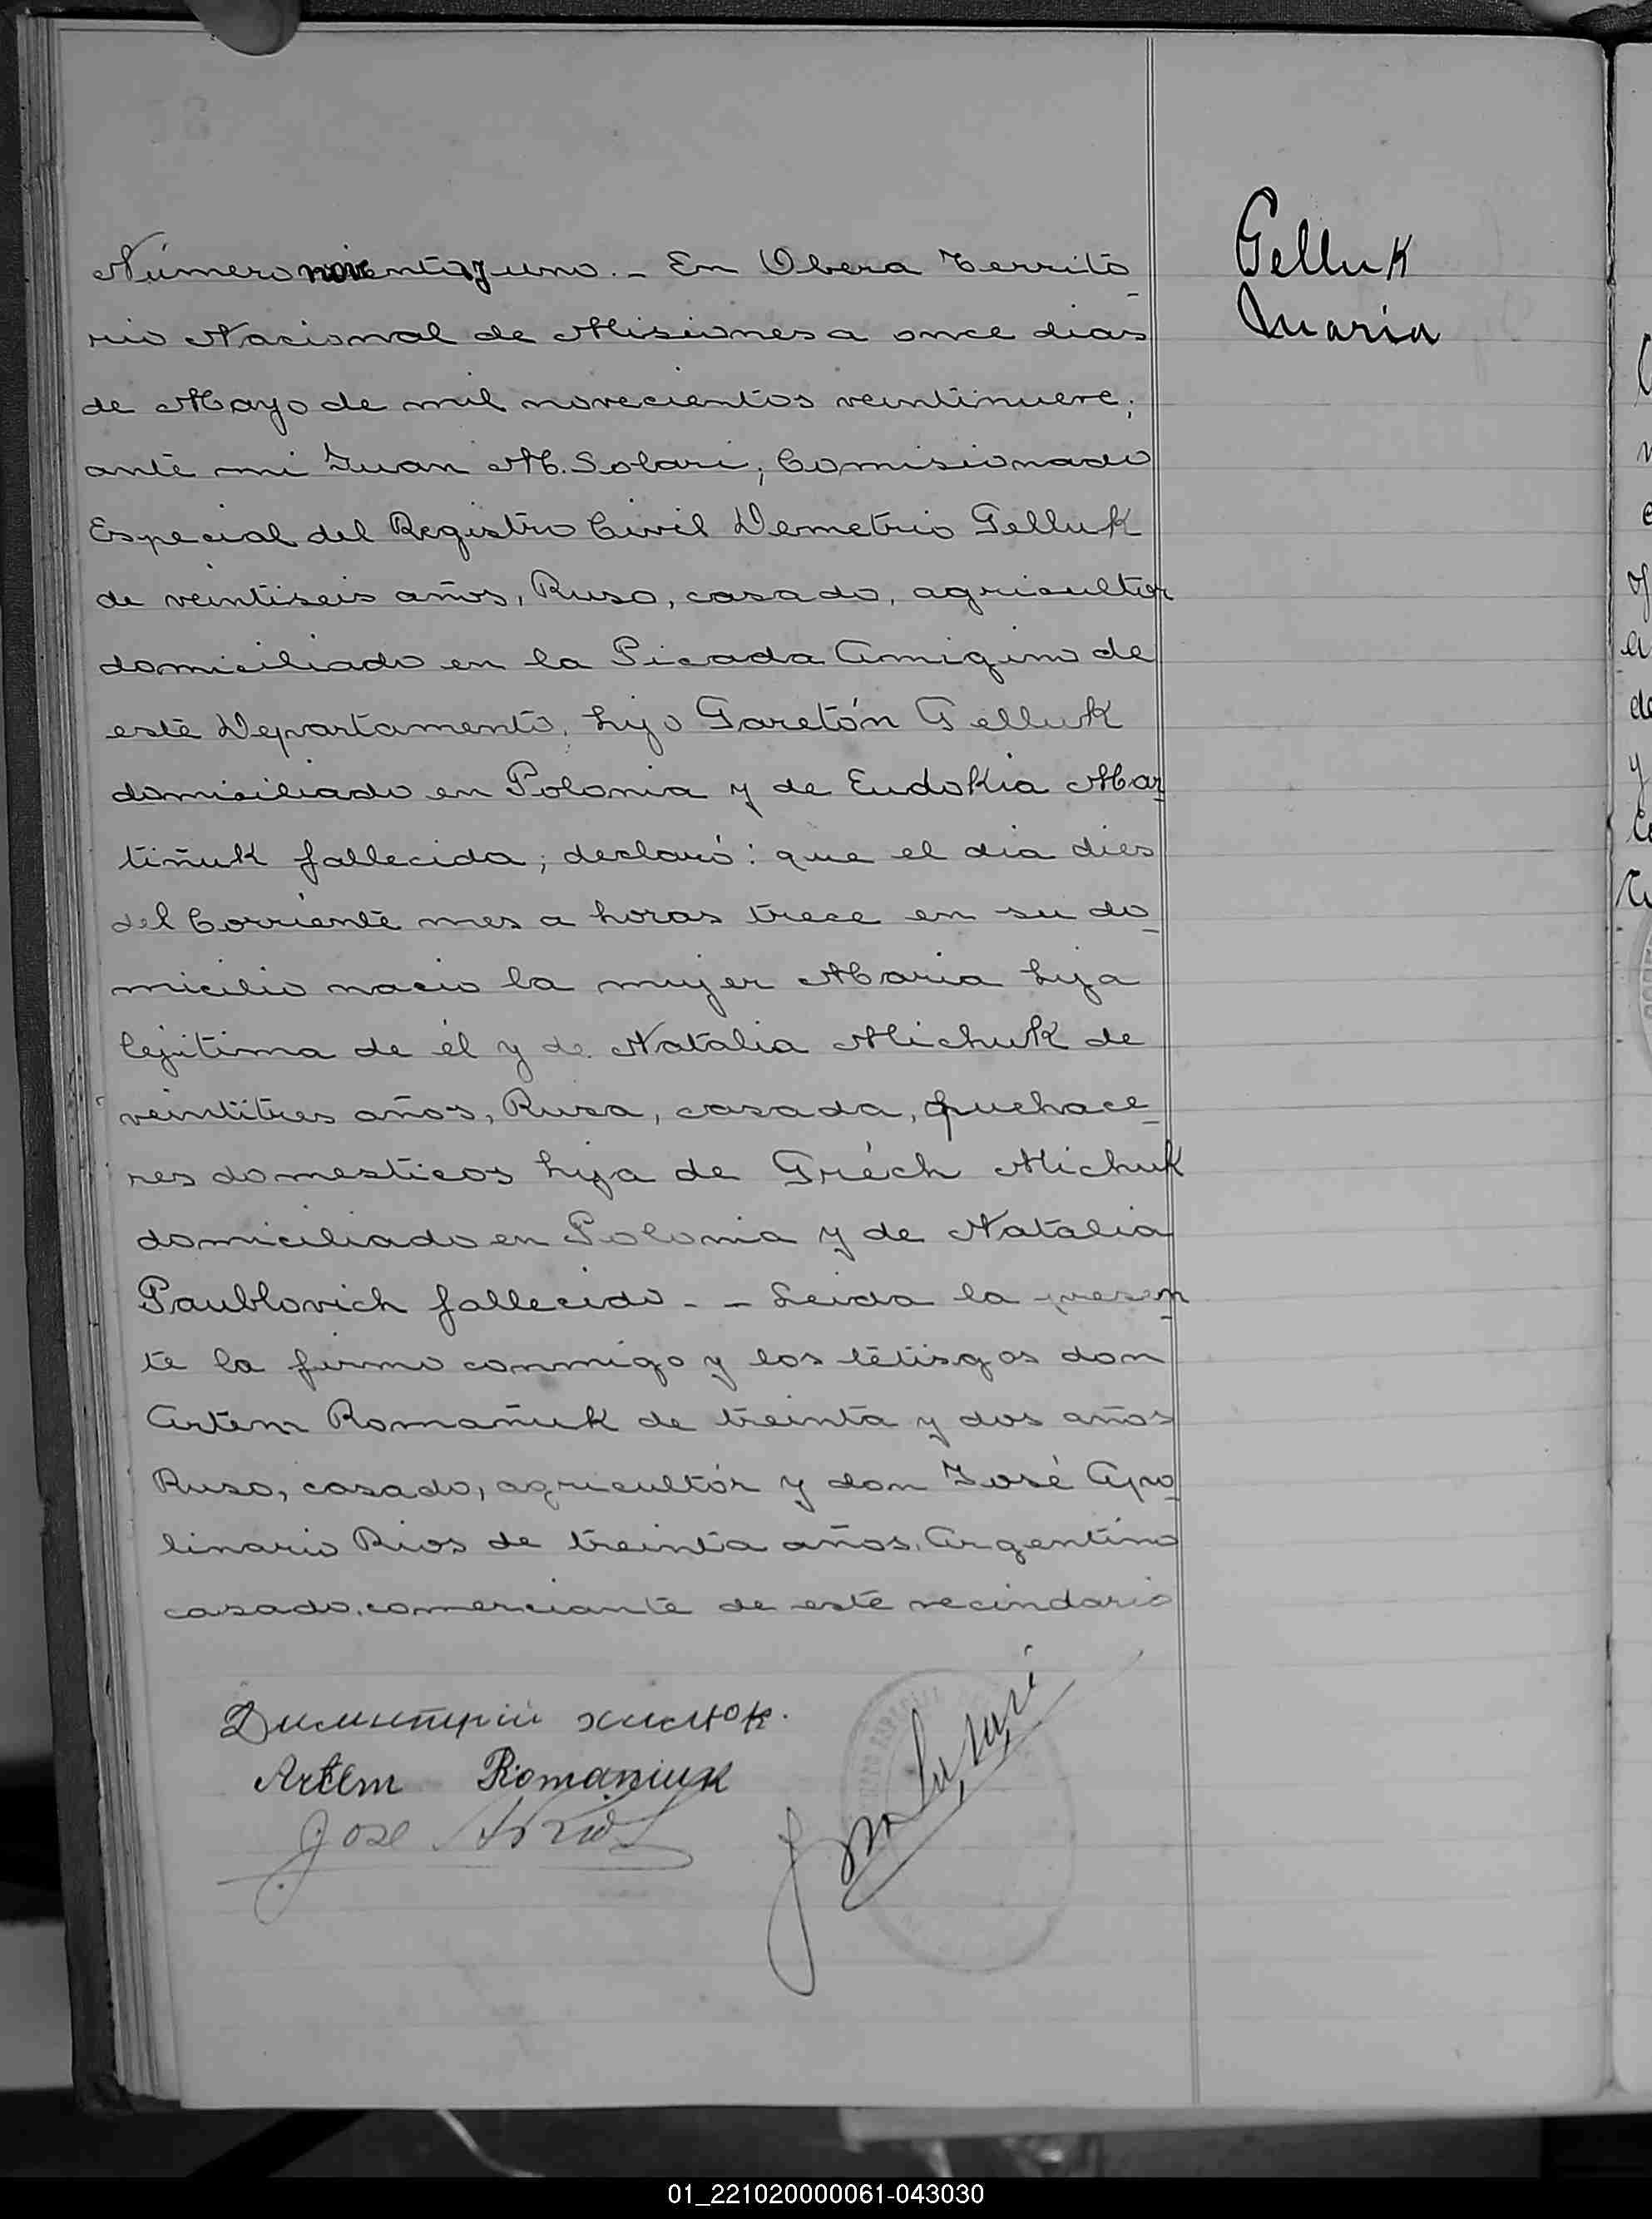 Número noventa y uno. - En Obera Territo
rio Nacional de Misiones a once dias
de Mayo de mil novecientos veintinueve;
ante mi Juan M. Solari, Comisionado
Especial del Registro Civil Demetrio Gelluk
de veintiseis años, Ruso, casado, agricultor
domiciliado en la Picada Amigino de
este Departamento, hijo Garetón Gelluk
domiciliado en Polonia y de Eudokia Mar
tiñuk fallecida; declaró: que el dia dies
del Corriente mes a horas trece en su do
micilio nacio la mujer Maria hija
lejitima de él y de Natalia Michuk de
veintitres años, Rusa, casada, quehace
res domesticos hija de Gréch Michuk
domiciliado en Polonia y de Natalia
Paublovich fallecido. - Leida la presen
te la firmo conmigo y los tetisgos don
Artem Romañuk de treinta y dos años
Ruso, casado, agricultór y don José Apo
linario Rios de treinta años, Argentino
casado, comerciante de este vecindario
Gelluk
Maria
Димитрій хилюк.
Artem Romaniuk
Jose A Rios
01_221020000061-043030